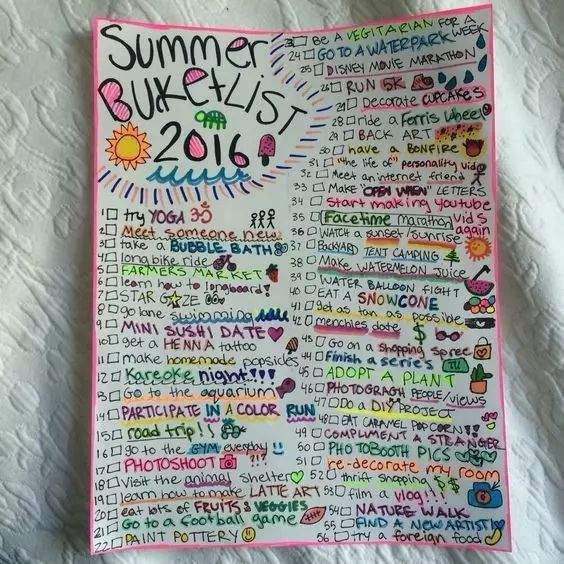 Summer
BuKetLIST
2016
1 try YOGA
2 Meet someone new
3 take a BUBBLE BATH
4 long bike ride
5 FARMERS MARKET
6 learn how to longboard!
7 STAR GAZE
8 go lane swimming
9 MINI SUSHI DATE
10 get a HENNA tattoo
11 make homemade popsides
12 Kareoke night!!!
13 Go to the aquarium
14 PARTICIPATE IN A COLOR RUN
15 road trip!!
16 go to the GYM everyday
17 PHOTOSHOOT
18 Visit the animal shelter
19 learn how to make LATTE ART
20 eat lots of FRUITS & VEGGIES
21 Go to a football game
22 PAINT POTTERY
23 BE A VEGITARIAN FOR A WEEK
24 GO TO A WATERPARK
25 DISNEY MOVIE MARATHON
26 RUN 5K
27 Decorate CUPCAKES
28 ride a Farris wheel
29 BACK ART
30 have a BONFIRE
31 "the life of" personality vid
32 Meet an internet friend
33 Make "OPEN WHEN" LETTERS
34 start making youtube vids again
35 Facetime marathon
36 WATCH a sunset/sunrise
37 BACKYARD TENT CAMPING
38 Make WATERMELON JUICE
39 WATER BALLOON FIGHT
40 EAT A SNOWCONE
41 get as tan as possible
42 menchies date
43 Go on a shopping spree
44 Finish a series
45 ADOPT A PLANT
46 PHOTOGRAGH PEOPLE/VIEWS
47 Do a DIY PROJECT
48 EAT CARAMEL POPCORN!!
49 COMPLIMENT A STRANGER
50 PHOTOBOOTH PICS
51 re-decorate my room
52 thrift shopping $$
53 film a vlog!!!
54 NATURE WALK
55 FIND A NEW ARTIST
56 try a foreign food